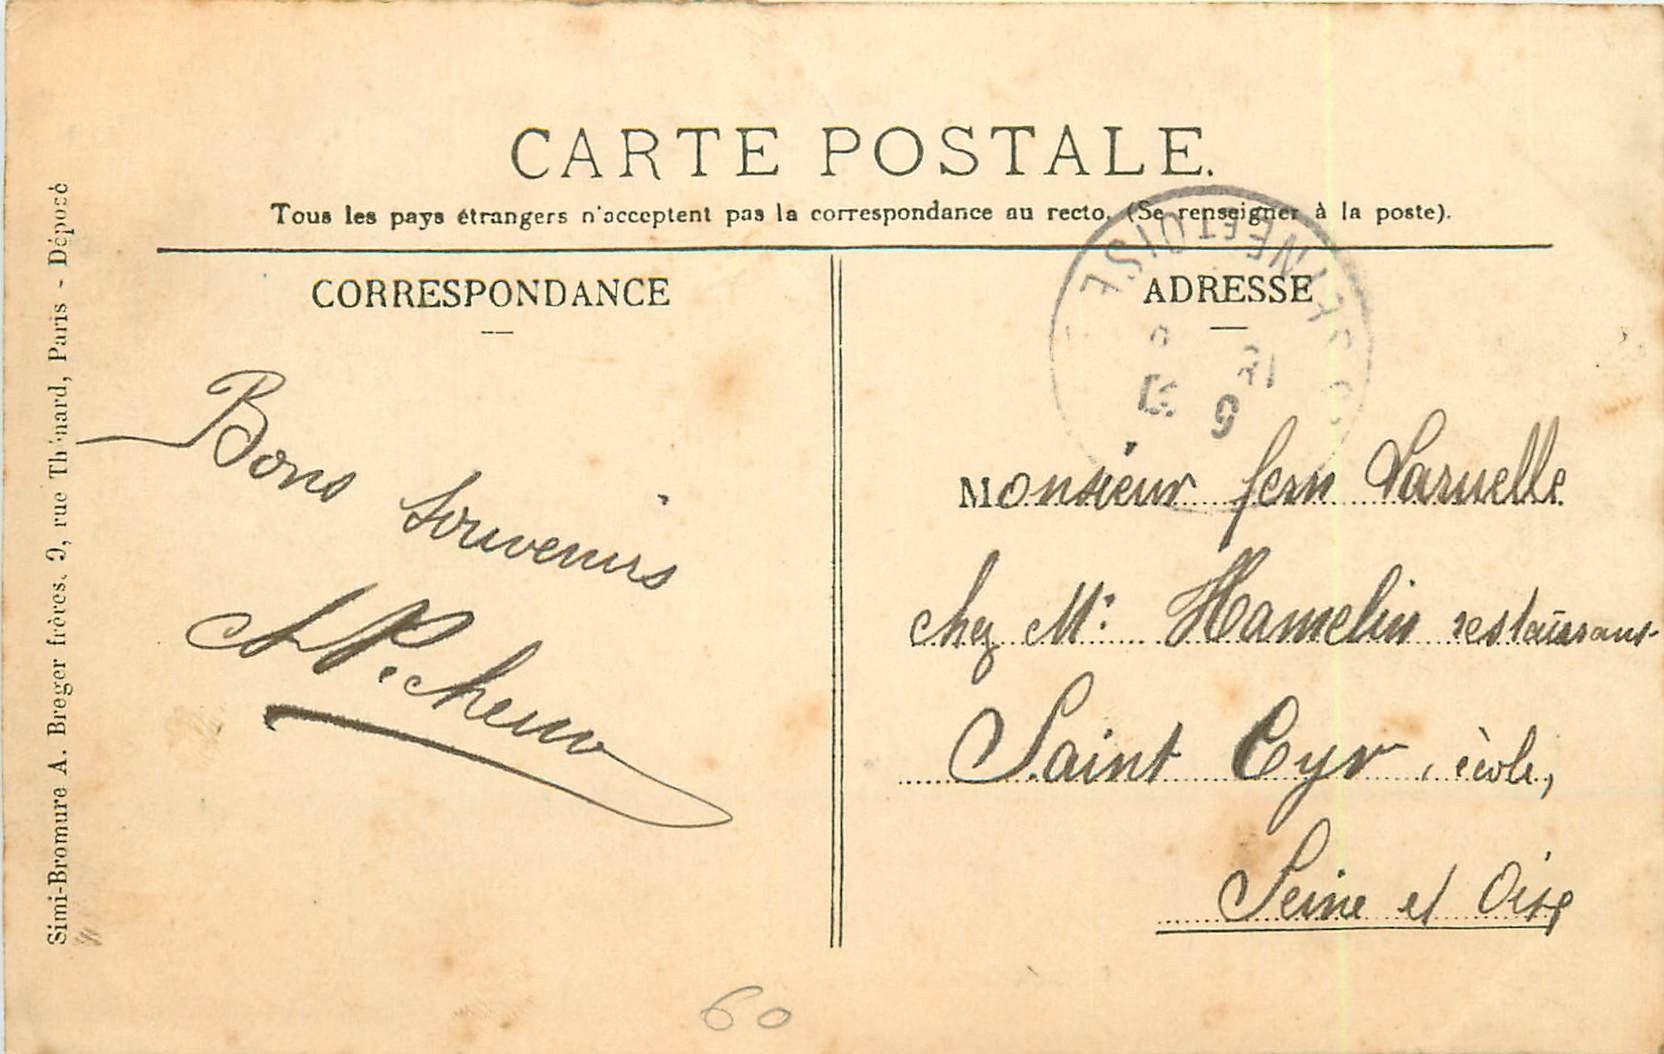 CARTE POSTALE.
Tous les pays étrangers n'acceptent pas la correspondance au recto. (Se renseigner à la poste).
CORRESPONDANCE
Bons souvenirs
ADRESSE
SEINE ET OISE
Monsieur fern Laruelle
chez Mr Hamelin restaurant
Saint Cyr, école,
Seine et Oise
Simi-Bromure A. Breger frères, 9, rue Thénard, Paris - Déposé
60